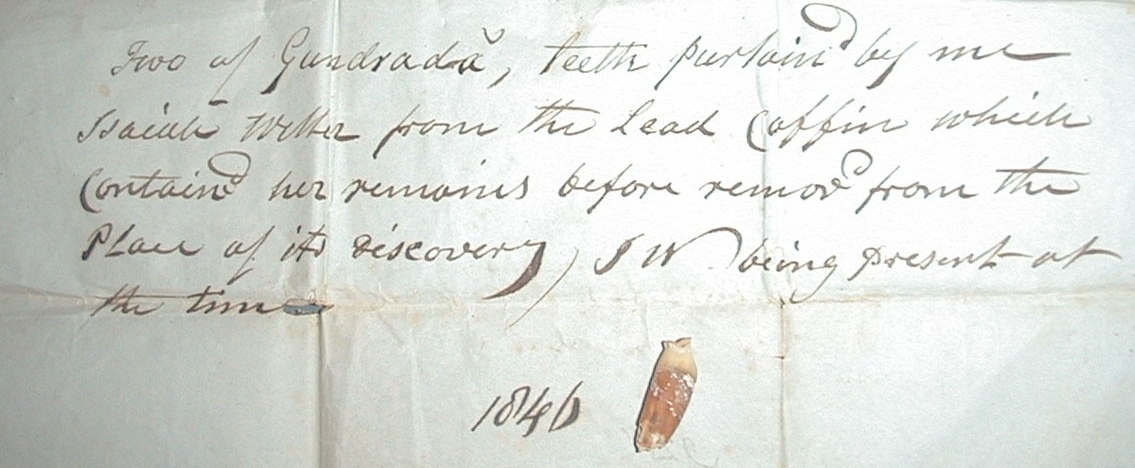 Two of Gundrada's, teeth purloin'd by me
Isaiah Weller from the Lead Coffin which
Contain'd her remains before remov'd from the
Place of its Discovery, I W being present at
the time
1846